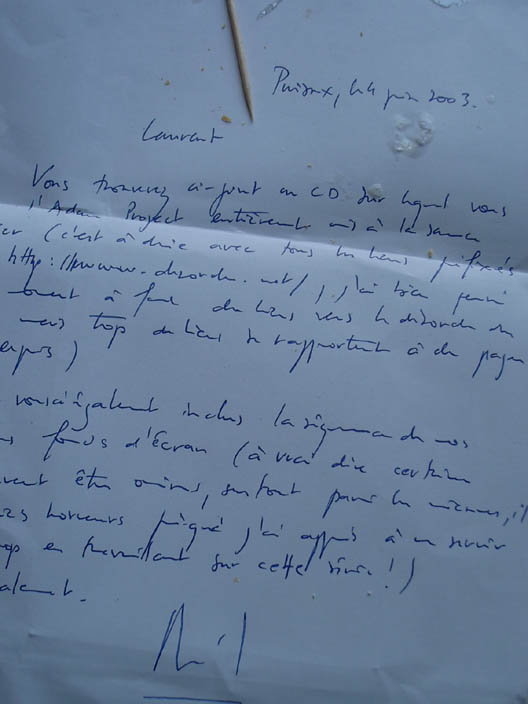 Puisaux, le 4 juin 2003.
Laurent
Vous trouverez ci-joint un CD sur lequel vous
l'Adam Project entièrement mis à la sauce
ier (c'est à dire avec tous les liens préfixés
http://wwww.desordre.net/), j'ai bien pensé
ment à faire des liens vers le désordre
mais trop de liens se rapportent à des pages
également inclus la séquence de nos
fonds d'écran (à vrai dire certains
être omis, surtout parmi les miennes, il
horreurs j'ai appris à me servir
en travaillant sur cette série!)
alement.